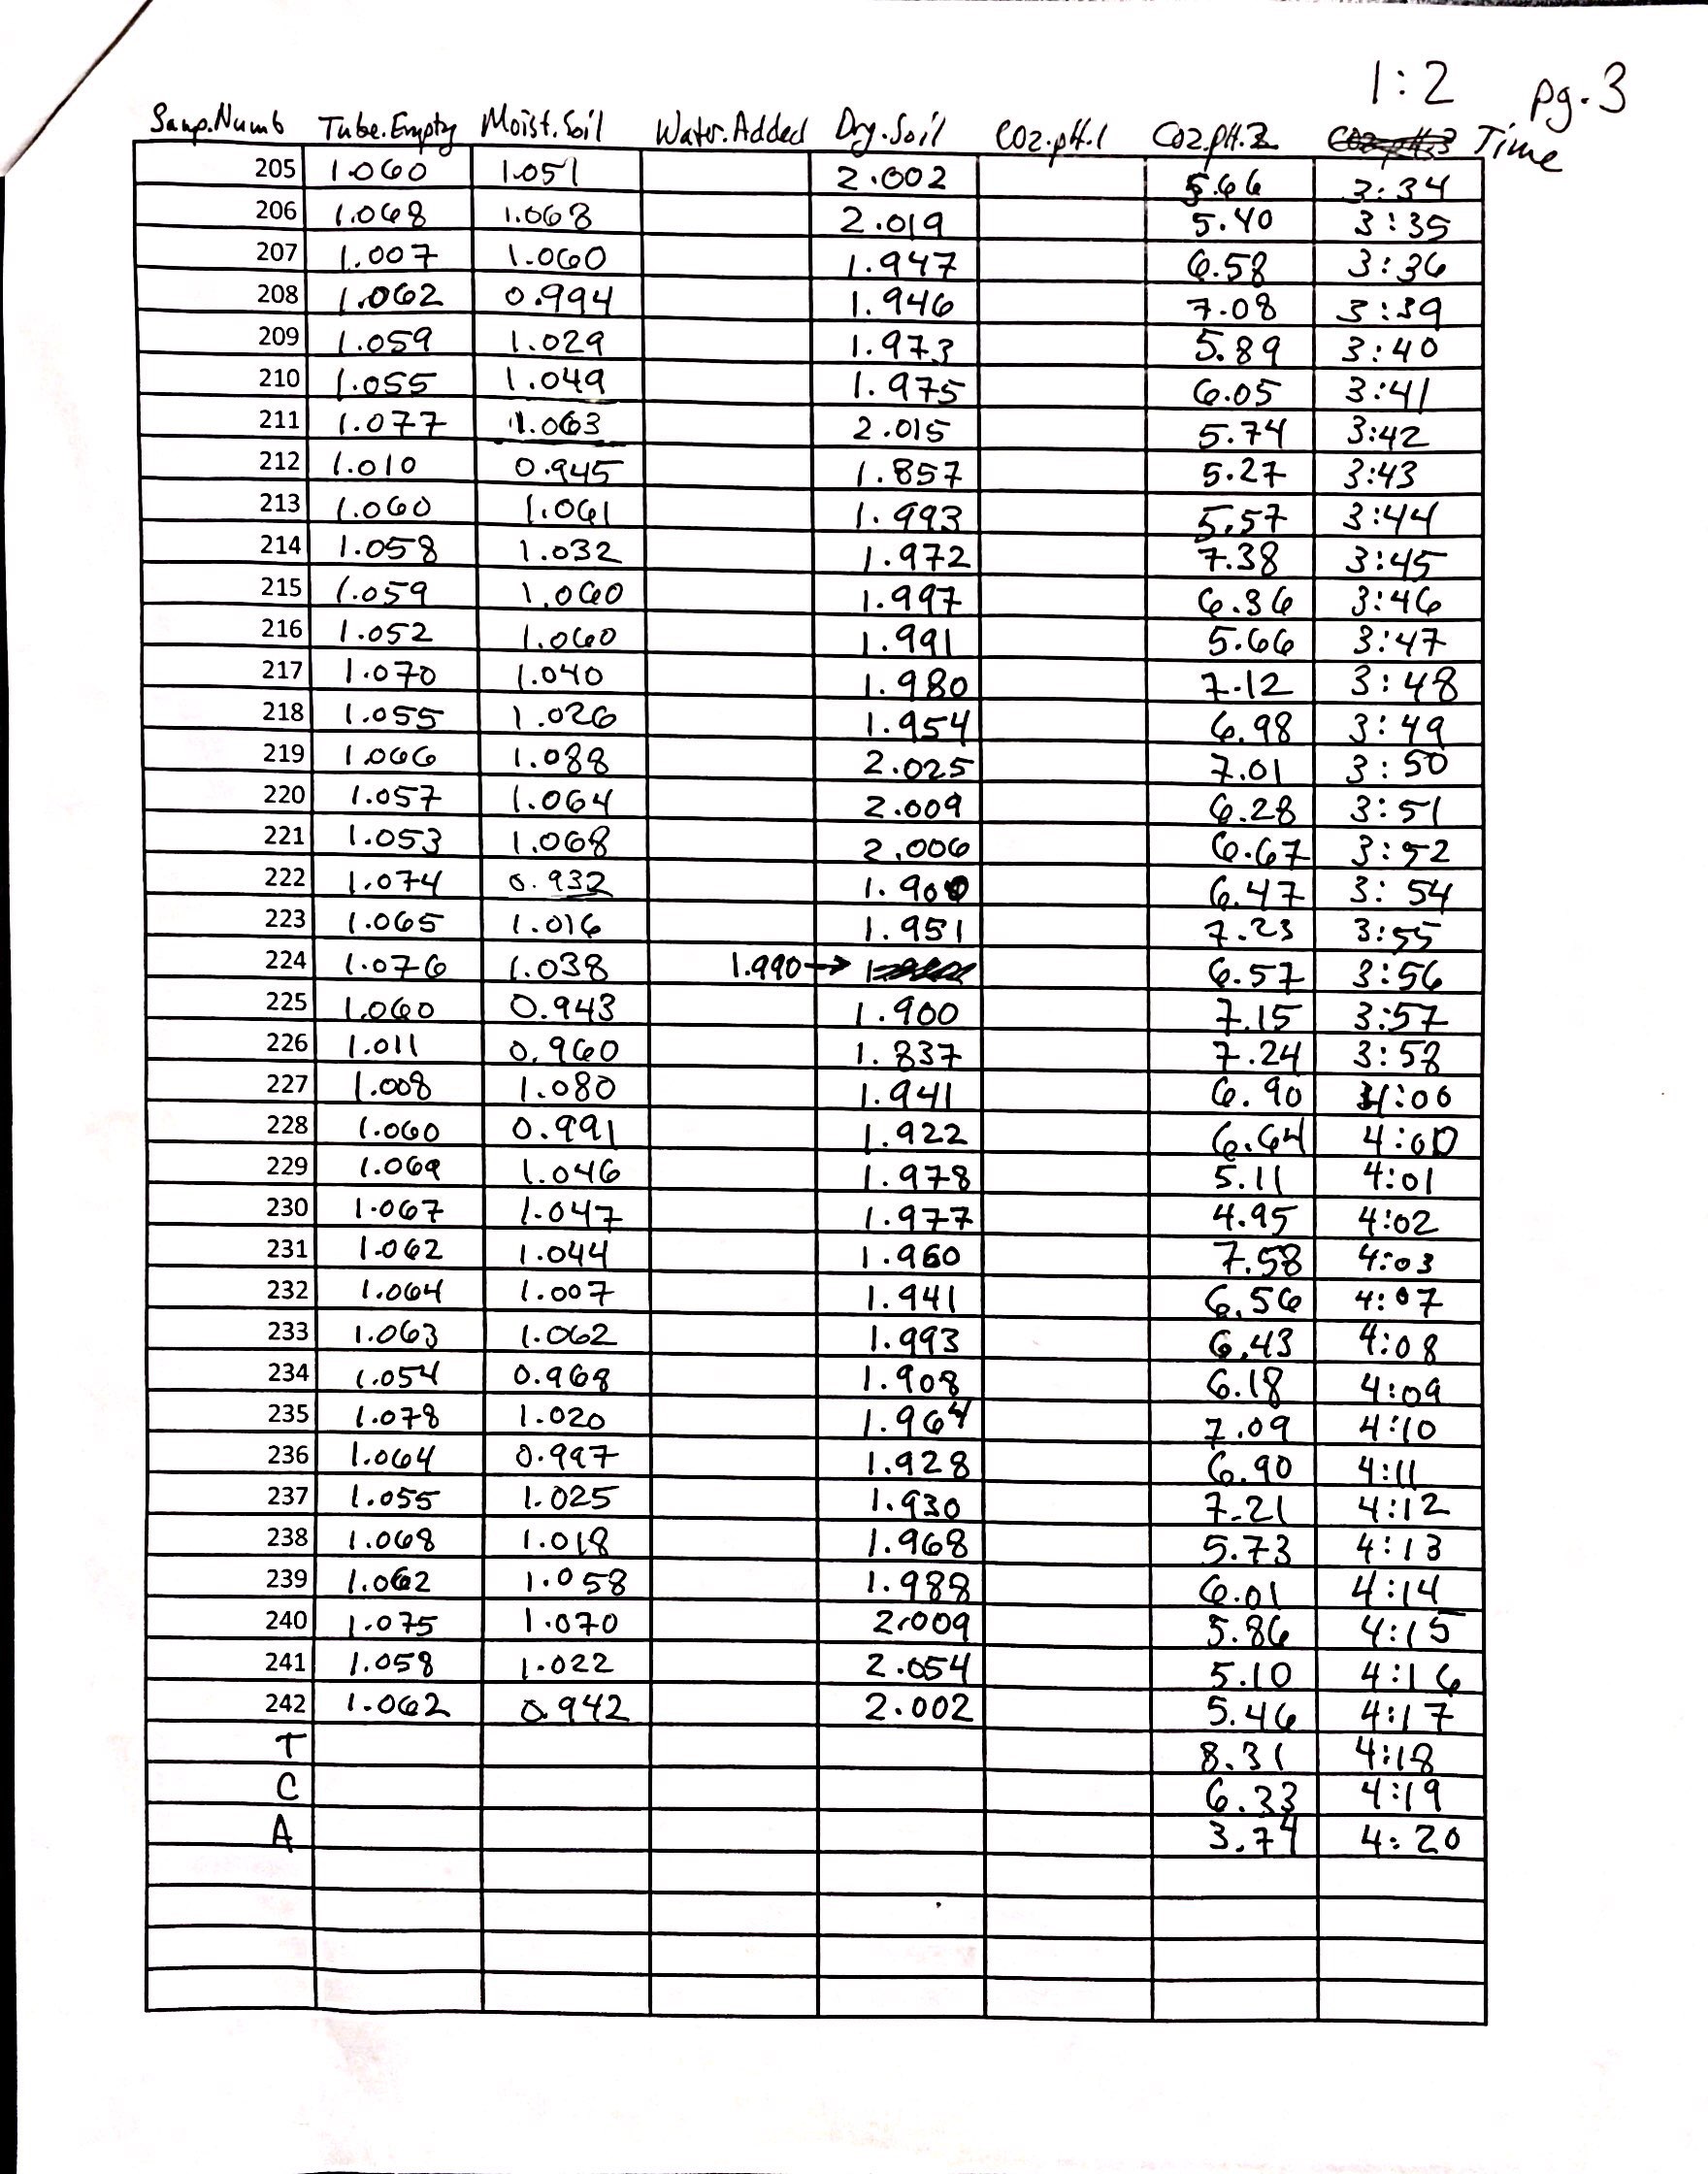 1:2 pg.3
Samp.Numb Tube.Empty Moist.Soil Water.Added Dry.Soil CO2.pH.1 CO2.pH.2 Time
205 1.060 1.051 2.002 5.66 3:34
206 1.068 1.068 2.019 5.40 3:35
207 1.007 1.060 1.947 6.58 3:36
208 1.062 0.994 1.946 7.08 3:39
209 1.059 1.029 1.973 5.89 3:40
210 1.055 1.049 1.975 6.05 3:41
211 1.077 1.063 2.015 5.74 3:42
212 1.010 0.945 1.857 5.27 3:43
213 1.060 1.061 1.993 5.57 3:44
214 1.058 1.032 1.972 7.38 3:45
215 1.059 1.060 1.997 6.36 3:46
216 1.052 1.060 1.991 5.66 3:47
217 1.070 1.040 1.980 7.12 3:48
218 1.055 1.026 1.954 6.98 3:49
219 1.066 1.088 2.025 7.01 3:50
220 1.057 1.064 2.009 6.28 3:51
221 1.053 1.068 2.006 6.67 3:52
222 1.074 0.932 1.900 6.47 3:54
223 1.065 1.016 1.951 7.23 3:55
224 1.076 1.038 1.990→ 6.57 3:56
225 1.060 0.943 1.900 7.15 3:57
226 1.011 0.960 1.837 7.24 3:58
227 1.008 1.080 1.941 6.90 4:00
228 1.060 0.991 1.922 6.64 4:00
229 1.069 1.046 1.978 5.11 4:01
230 1.067 1.047 1.977 4.95 4:02
231 1.062 1.044 1.960 7.58 4:03
232 1.064 1.007 1.941 6.56 4:07
233 1.063 1.062 1.993 6.43 4:08
234 1.054 0.968 1.908 6.18 4:09
235 1.078 1.020 1.964 7.09 4:10
236 1.064 0.997 1.928 6.90 4:11
237 1.055 1.025 1.930 7.21 4:12
238 1.068 1.018 1.968 5.73 4:13
239 1.062 1.058 1.988 6.01 4:14
240 1.075 1.070 2.009 5.86 4:15
241 1.058 1.022 2.054 5.10 4:16
242 1.062 0.942 2.002 5.46 4:17
T 8.31 4:18
C 6.33 4:19
A 3.74 4:20